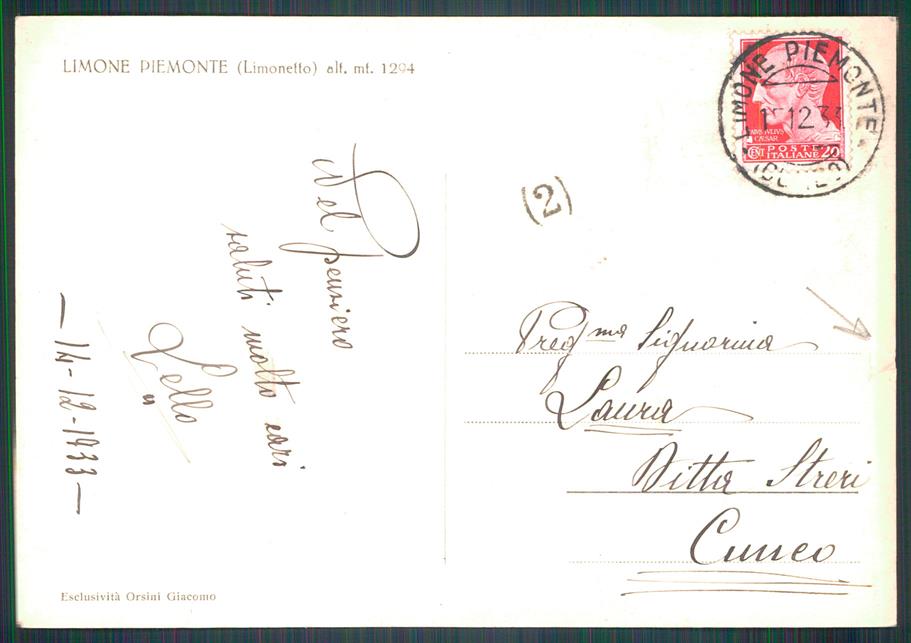 LIMONE PIEMONTE (Limonetto) alt. mt. 1294
Nel pensiero
saluti molto cari
Lello
— 14-12-1933 —
Esclusività Orsini Giacomo
LIMONE PIEMONTE
12.33
CAIVS IVLIVS
CAESAR
CENT POSTE ITALIANE 20
(2)
Preg.ma Signorina
Laura
Ditta Streri
Cuneo